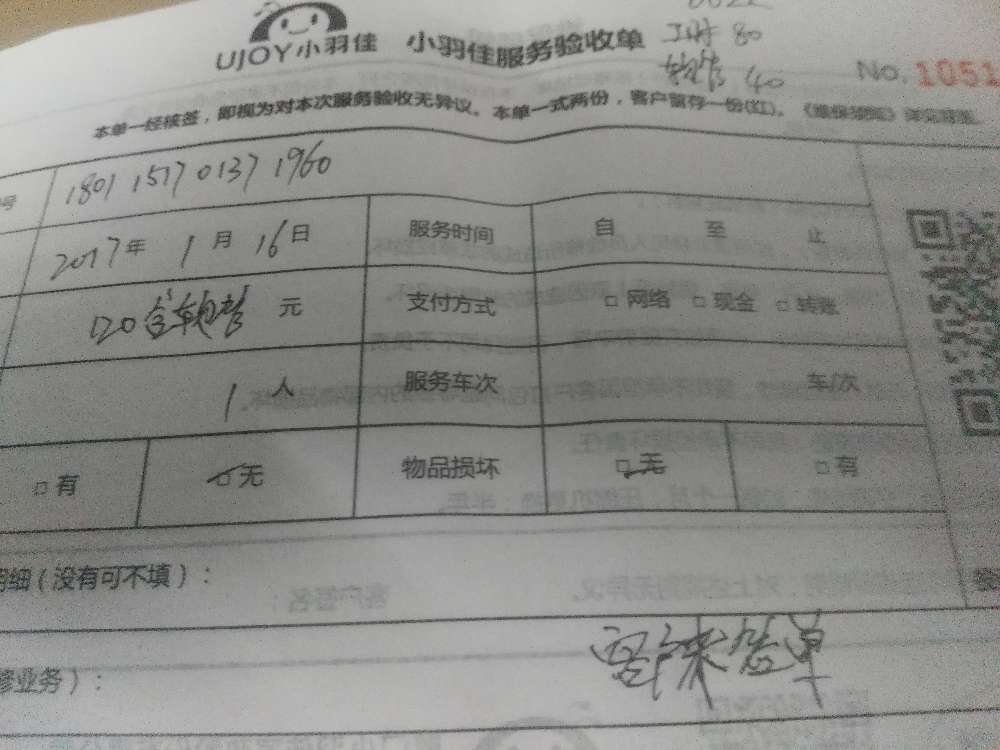 UJOY小羽佳 小羽佳服务验收单
工时 80
40
No. 1051
本单一经核签，即视为对本次服务验收无异议。本单一式两份，客户留存一份(红)。《维保须知》详见背面。
号 1801 1517 0137 1960
2017年 1月 16日 服务时间 自 至 止
120含 元 支付方式 □ 网络 □ 现金 □ 转账
1人 服务车次 车/次
□ 有 □ 无 物品损坏 □ 无 □ 有
明细（没有可不填）：
修业务）：
客户未签单